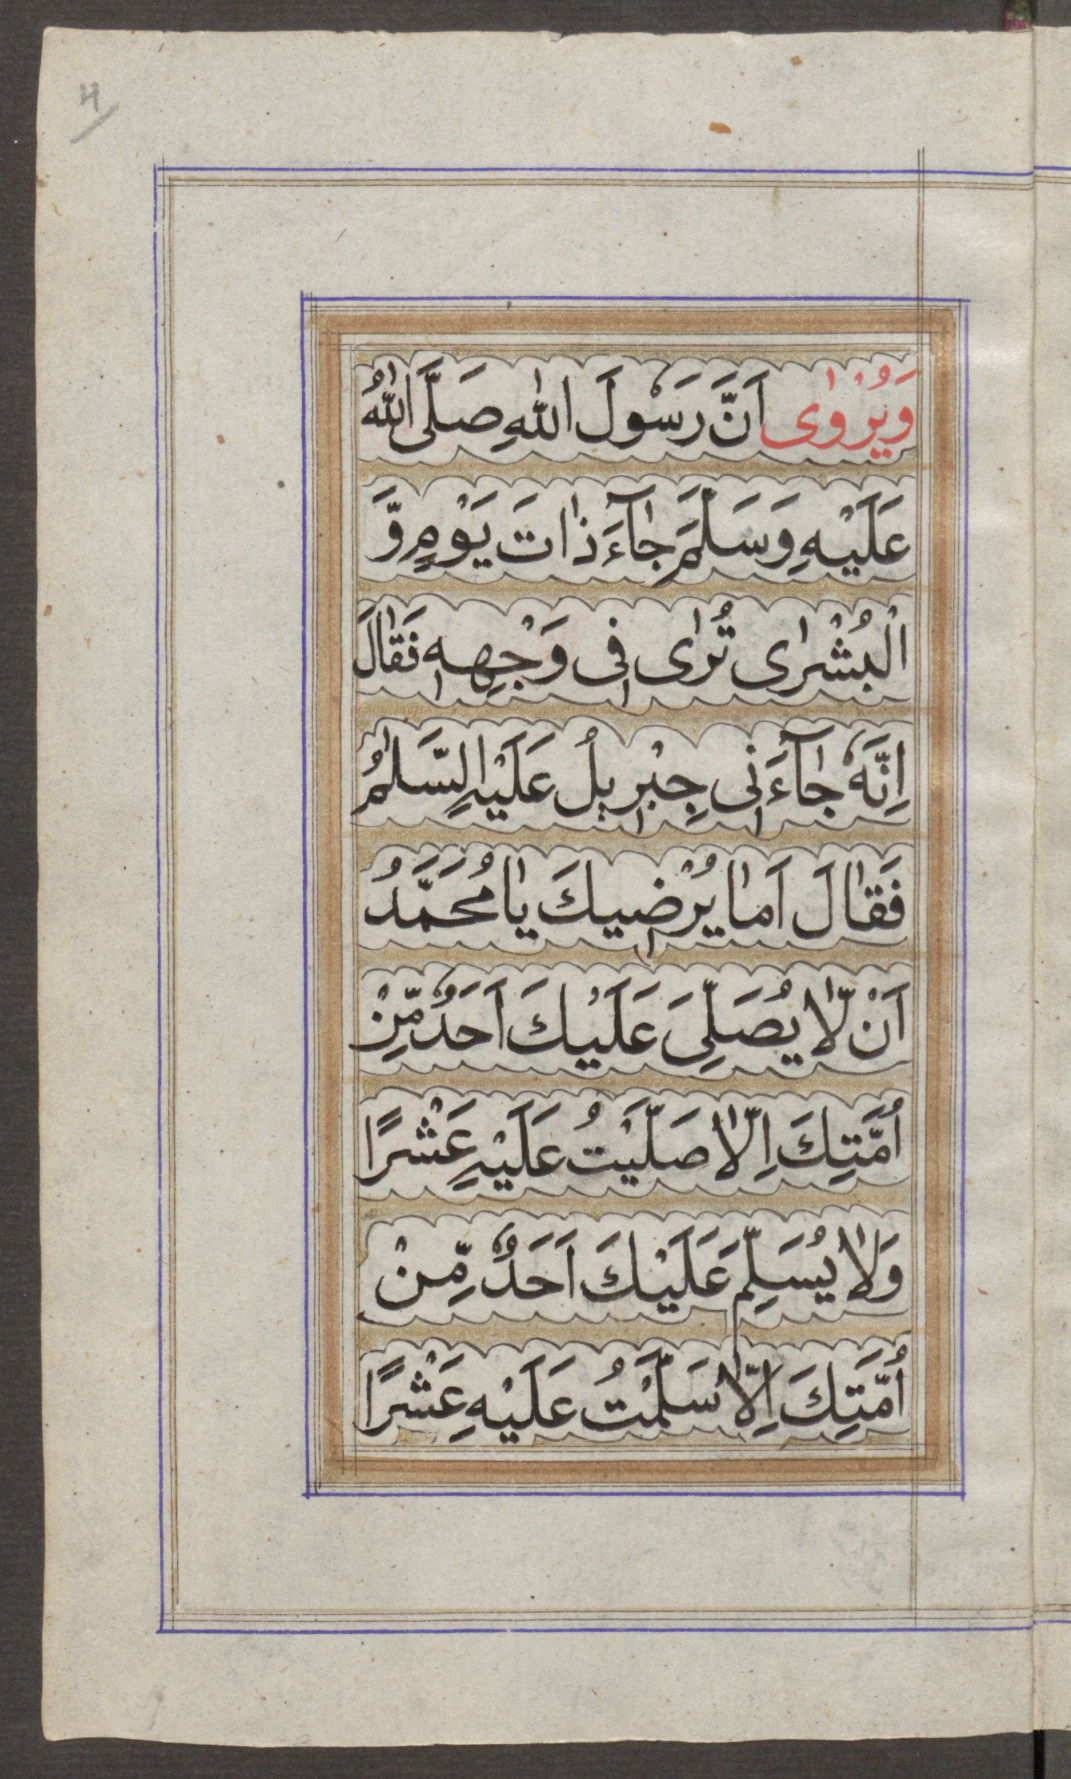 وَيُرْوٰى اَنَّ رَسْولَ اللّٰهِ صَلَّى اللّٰهُ
عَلَيْهِ وَسَلَّمَ جٰآءَ ذٰاتَ يَوْمٍ وَّ
الْبُشْرٰى تُرٰى فِى وَجْهِهٖ فَقٰالَ
اِنَّهٗ جٰآءَنِى جِبْرِيلُ عَلَيْهِ السَّلٰمُ
فَقٰالَ اَمٰا يُرْضِيكَ يٰا مُحَمَّدُ
اَنْ لّٰا يُصَلِّىَ عَلَيْكَ اَحَدٌ مِّنْ
اُمَّتِكَ اِلّٰا صَلَّيْتُ عَلَيْهِ عَشْرًا
وَلٰا يُسَلِّمَ عَلَيْكَ اَحَدٌ مِّنْ
اُمَّتِكَ اِلّٰا سَلَّمْتُ عَلَيْهِ عَشْرًا